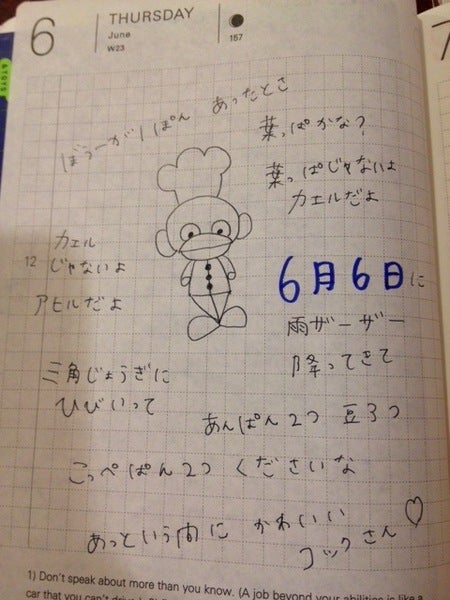 6
THURSDAY
June
W23
157
ぼうーが1ぽん あったとさ
葉っぱかな?
葉っぱじゃないよ
カエルだよ
カエル
12
じゃないよ
アヒルだよ
6月6日に
雨ザーザー
降ってきて
三角じょうぎに
ひびいって
あんぱん2つ 豆3つ
こっぺぱん2つ くださいな
あっという間に かわいい
コックさん♡
1) Don't speak about more than you know. (A job beyond your abilities is like a